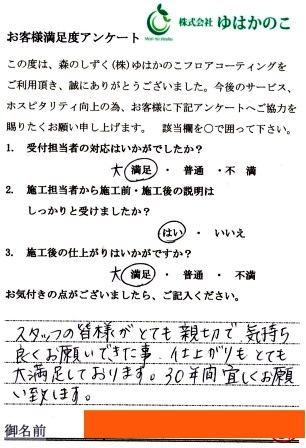 株式会社 ゆはかのこ
お客様満足度アンケート
この度は、森のしずく(株)ゆはかのこフロアコーティングを
ご利用頂き、誠にありがとうございました。今後のサービス、
ホスピタリティ向上の為、お客様に下記アンケートへご協力を
賜りたくお願い申し上げます。 該当欄を○で囲って下さい。
1. 受付担当者の対応はいかがでしたか?
大 満足 ・ 普通 ・不 満
2. 施工担当者から施工前・施工後の説明は
しっかりと受けましたか?
はい ・ いいえ
3. 施工後の仕上がりはいかがですか?
大 満足 ・ 普通 ・ 不満
お気付きの点がございましたら、ご記入ください。
スタッフの皆様がとても親切で、気持ち
良くお願いできた事、仕上がりもとても
大満足しております。30年間宜しくお願
い致します。
御名前